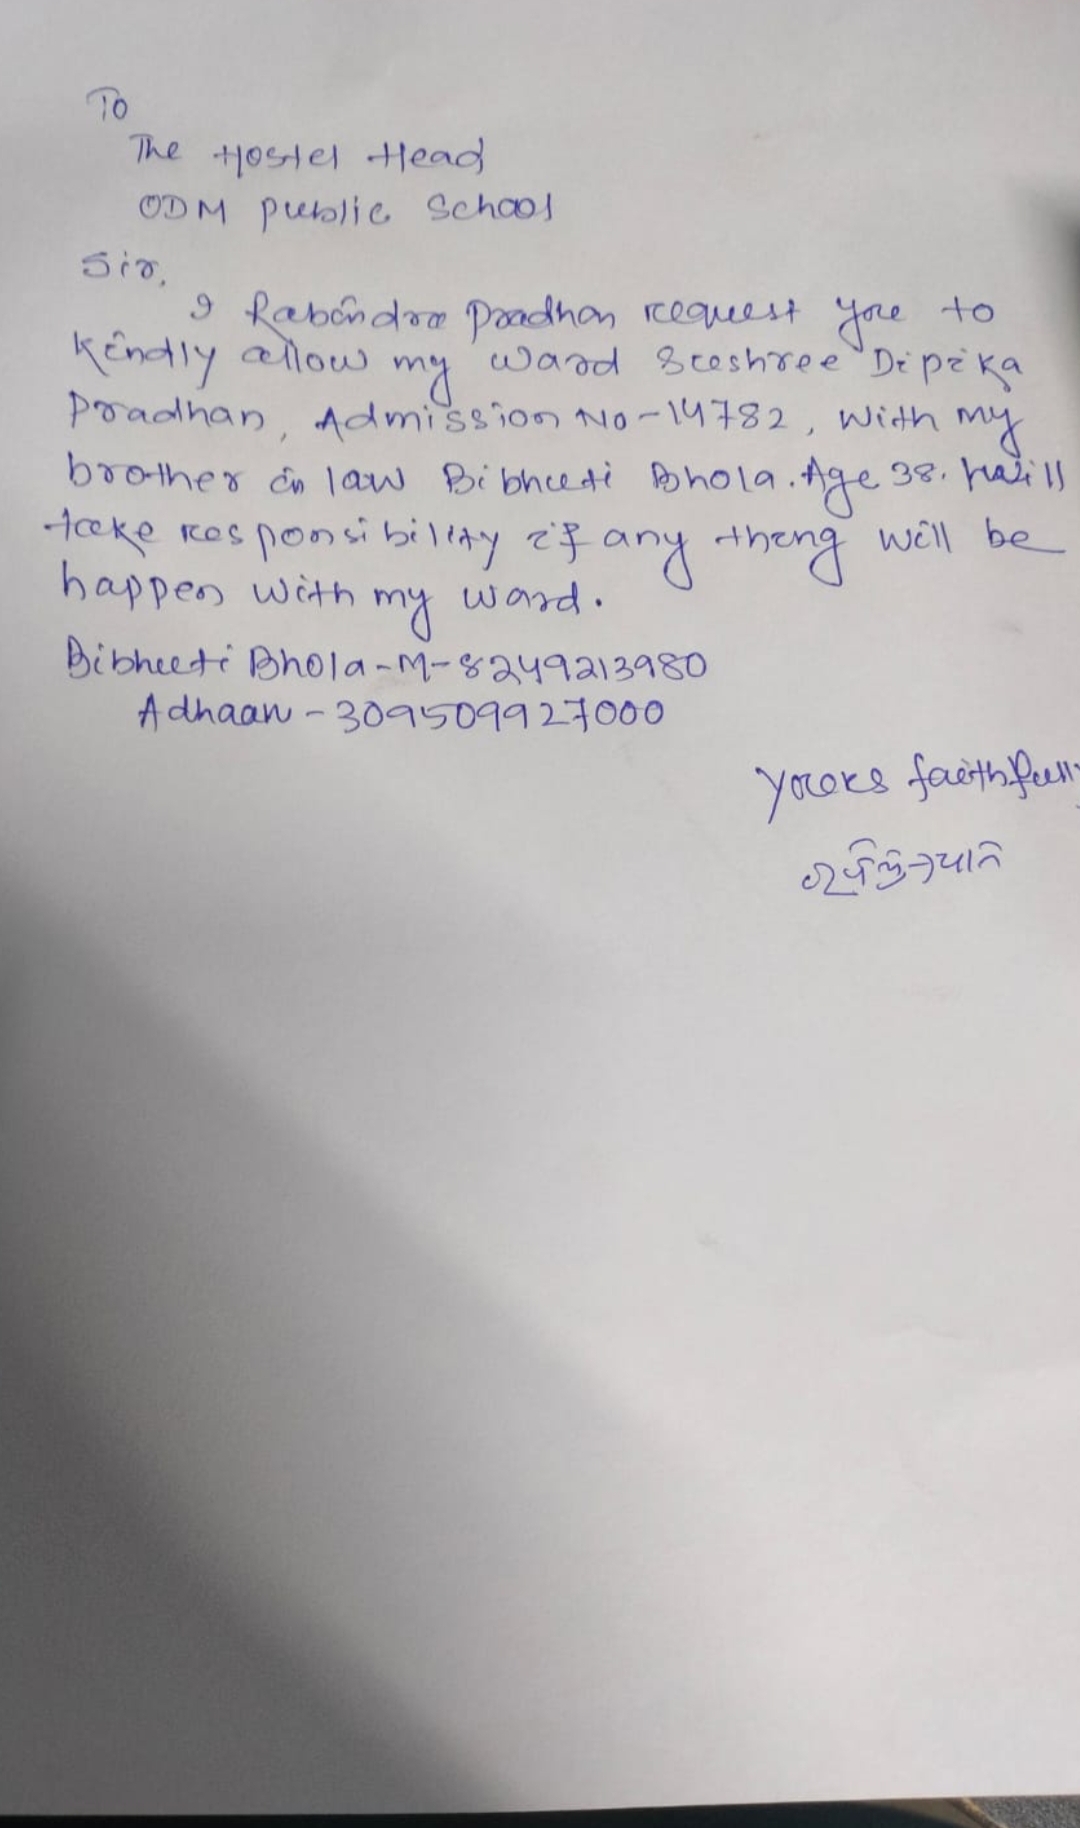 To
The Hostel Head
ODM Public School
Sir,
I Rabindra Pradhan request you to
kindly allow my ward Sushree Dipika
Pradhan, Admission No-14782, with my
brother in law Bibhuti Bhola. Age 38. will
take responsibility if any thing will be
happen with my ward.
Bibhuti Bhola-M-8249213980
Adhaar-309509927000
yours faithfully